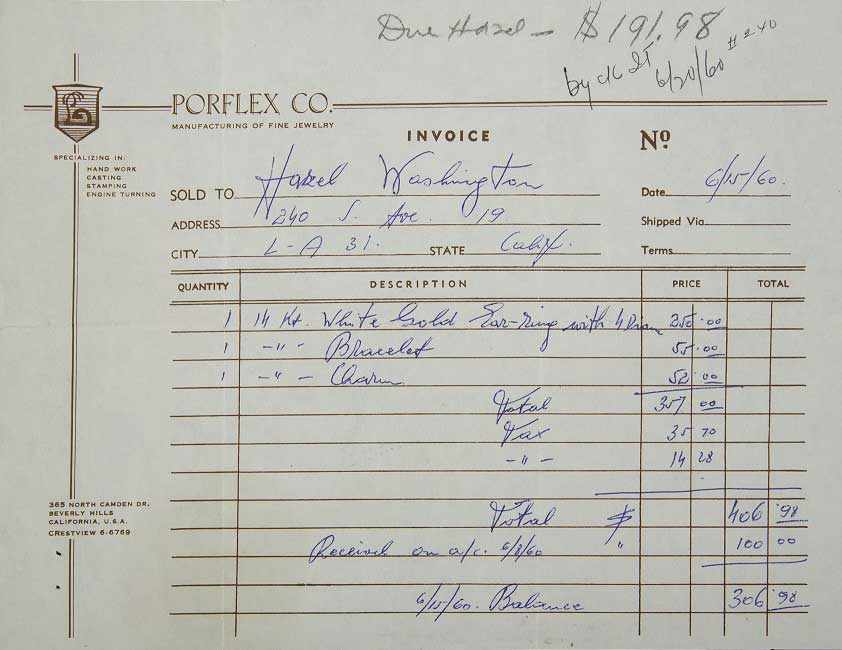 Due Hazel - $191.98
by ck
6/20/60 #240
PORFLEX CO.
MANUFACTURING OF FINE JEWELRY
INVOICE
Nº
SPECIALIZING IN:
HAND WORK
CASTING
STAMPING
ENGINE TURNING
SOLD TO Hazel Washington
Date 6/15/60.
ADDRESS 240 S. Ave. 19
Shipped Via
CITY L-A 31. STATE Calif.
Terms
QUANTITY DESCRIPTION PRICE TOTAL
1 14 Kt. White Gold Ear-ring with 4 Diam 250.00
1 -"- Bracelet 55.00
1 -"- Charm 52 00
Total 357 00
Tax 35 70
-"- 14 28
Total $ 406 98
Received on a/c. 6/8/60 " 100 00
6/15/60. Balance 306 98
365 NORTH CAMDEN DR.
BEVERLY HILLS
CALIFORNIA, U.S.A.
CRESTVIEW 6-6769